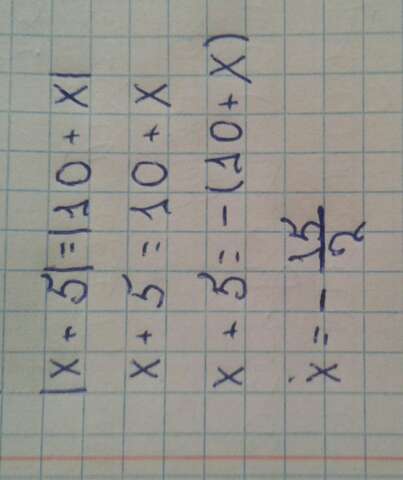 |x + 5| = |10 + x|
x + 5 = 10 + x
x + 5 = - (10 + x)
x = - 15/2